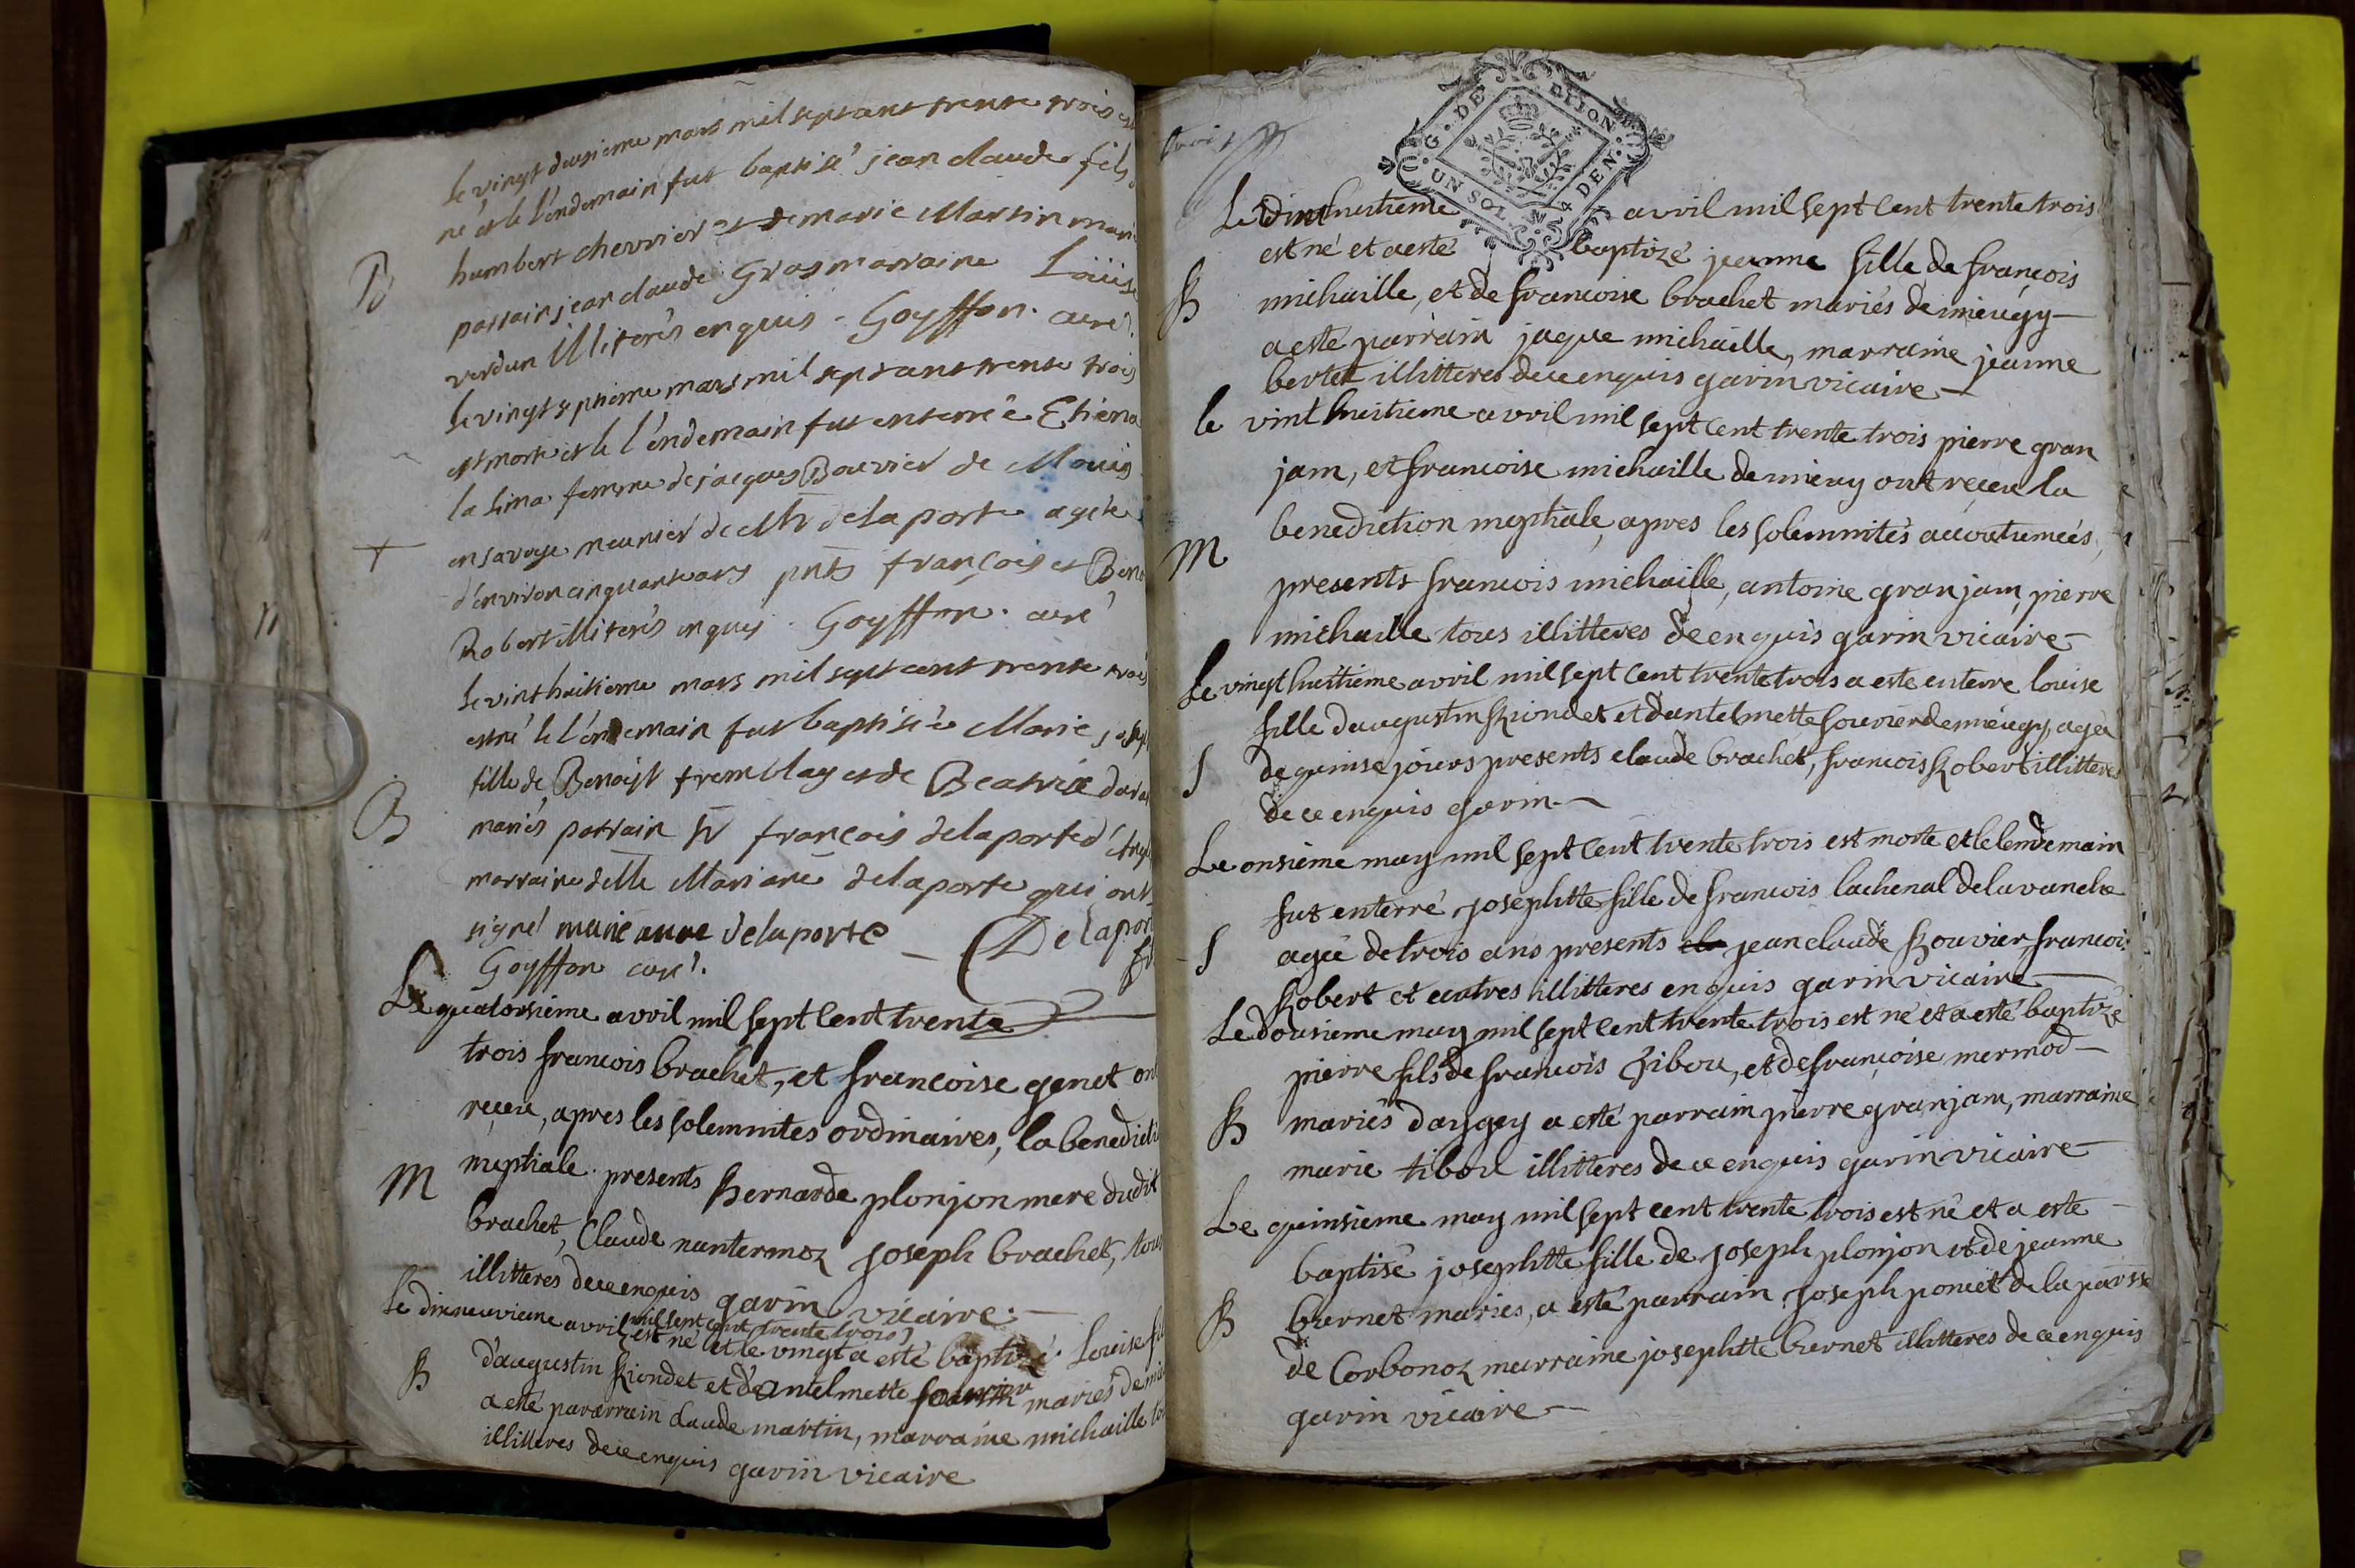 le vingt deusieme mars mil sept cent trente trois est
né et le l'endemain fut baptisé jean claude fils
B
humbert chevrier et de marie Martin mari
parrain jean claude Gros marraine Loüise
verdun illiterés enquis. Goyffon. curé.
le vingt septieme mars mil sept cent trente trois
est morte et le l'endemain fut enterrée Etiena
la lima femme de jacques Bouvier de
en savoye meunier de Mr delaporte agée
+
d'environ cinquante ans pnts françois et Beno
Robert illiterés enquis. Goyffon. curé
le vint huitieme mars mil sept cent trente trois
est né le l'endemain fut baptisée Marie josep
fille de Benoist tremblay et de Beatrix
B
mariés parrain Sr françois delaporte d'
marraine delle Mariane delaporte qui ont
signé marie anne delaporte Delaport
Goyffon curé.
Le quatorsieme avril mil sept cent trente
trois francois brachet, et francoise genet on
receu, apres les solemnites ordinaires, la benedicti
M
nuptiale. presents Bernarde plonjon mere dudit
brachet, Claude nantermoz joseph brachet, tous
illitteres de ce enquis garin vicaire.
mil sept cent trente trois
le dixneuvieme avril est né et le vingt a esté baptizé Louise fil
B
d'augustin Riondet et d'antelmette mariés de
a esté pararrain claude martin, marraine michaille
illitteres de ce enquis garin vicaire
G. DE LION
UN SOL 4 DEN.
Le dixhuitieme avril mil sept cent trente trois
est né et a esté baptizé jeanne fille de francois
B
michaille, et de francoise brachet mariés de mieugy
a esté parrain jaque michaille, marraine jeanne
bertet illitteres de ce enquis garin vicaire
le vint huitieme avril mil sept cent trente trois pierre gran
jam, et francoise michaille de mieugy ont receu la
benediction nuptiale, apres les solemnités accoutumées,
M
presents francois michaille, antoine granjam, pierre
michaille tous illitteres de enquis garin vicaire
Le vingt huitieme avril mil sept cent trente trois a este enterre louise
fille daugustin Riondet et dantelmette souvier de mieugy, agéa
S
de quinse jours presents claude brachet, francois Robert illitteres
de ce enquis garin
Le onsieme may mil sept cent trente trois est morte et le lendemain
fut enterré josephtte fille de francois lachenal de lavanche
S
agée de trois ans presents jean claude Bouvier, francois
Robert et autres illitteres enquis garin vicaire
Le dousieme may mil sept cent trente trois est né et a esté baptizé
pierre fils de francois Tibou, et de françoise mermod
B
mariés d'aygey a esté parrain pierre granjam, marraine
marie tibou illitteres de ce enquis garin vicaire
Le quinsieme may mil sept cent trente trois est né et a este
baptisé josephtte fille de joseph plonjon et de jeanne
B
burnet mariés, a esté parrain joseph poncet de la paroisse
de Corbonoz marraine josephtte burnet illitteres de ce enquis
garin vicaire